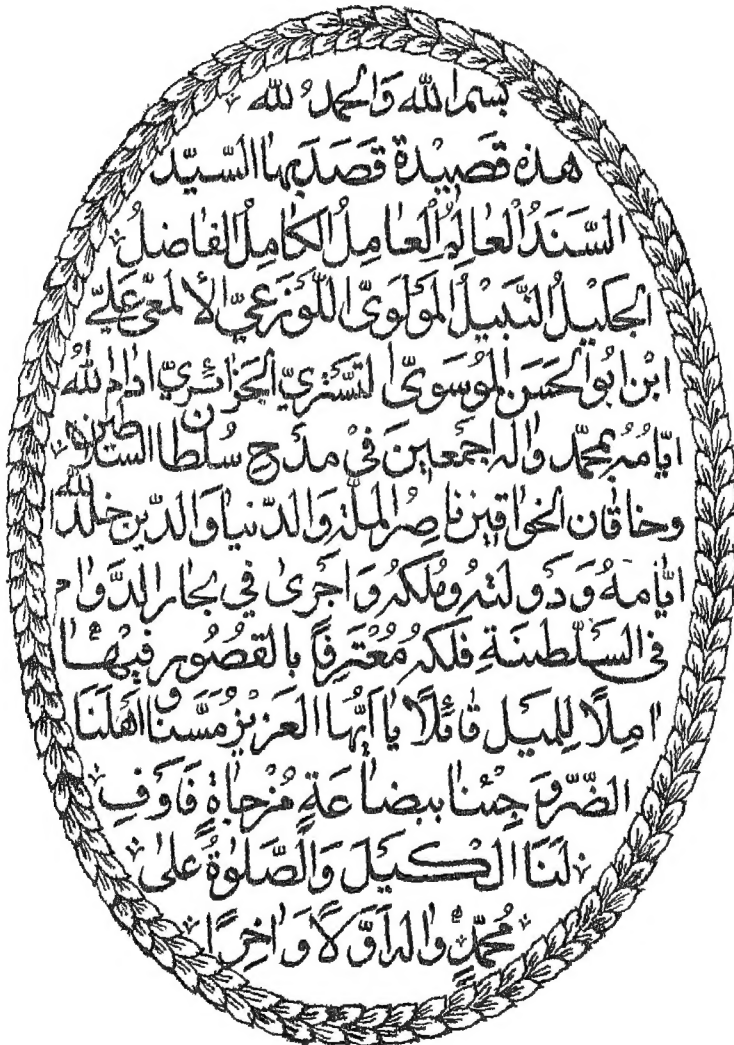 بسم الله والحمد لله
هذه قصيدة قصد بها السّيّد
السّنَدُ العالِمُ العامِلُ الكامِلُ الفاضلُ
الجليلُ النّبيلُ المولوىّ اللّوزعىّ الألمعىّ علي
ابن ابو الحسن الموسوىّ التسترىّ الجزائرىّ ادام الله
ايّامه بمحمّد واله اجمعين في مدح سلطان السّلاطين
وخاقان الخواقين ناصر الملّة والدّنيا والدّين خلد الله
ايّامه ودولته وملكه واجرىٰ في بحار الدّوام
فى السلطنة فلكه معترفًا بالقصور فيها
املًا للميل قائلًا يا ايّها العزيز مسّنا واهلنا
الضّر وجئنا ببضاعةٍ مزجاةٍ فاوفِ
لنا الكيل والصّلوٰة علىٰ
محمّدٍ واله اوّلًا واخرًا